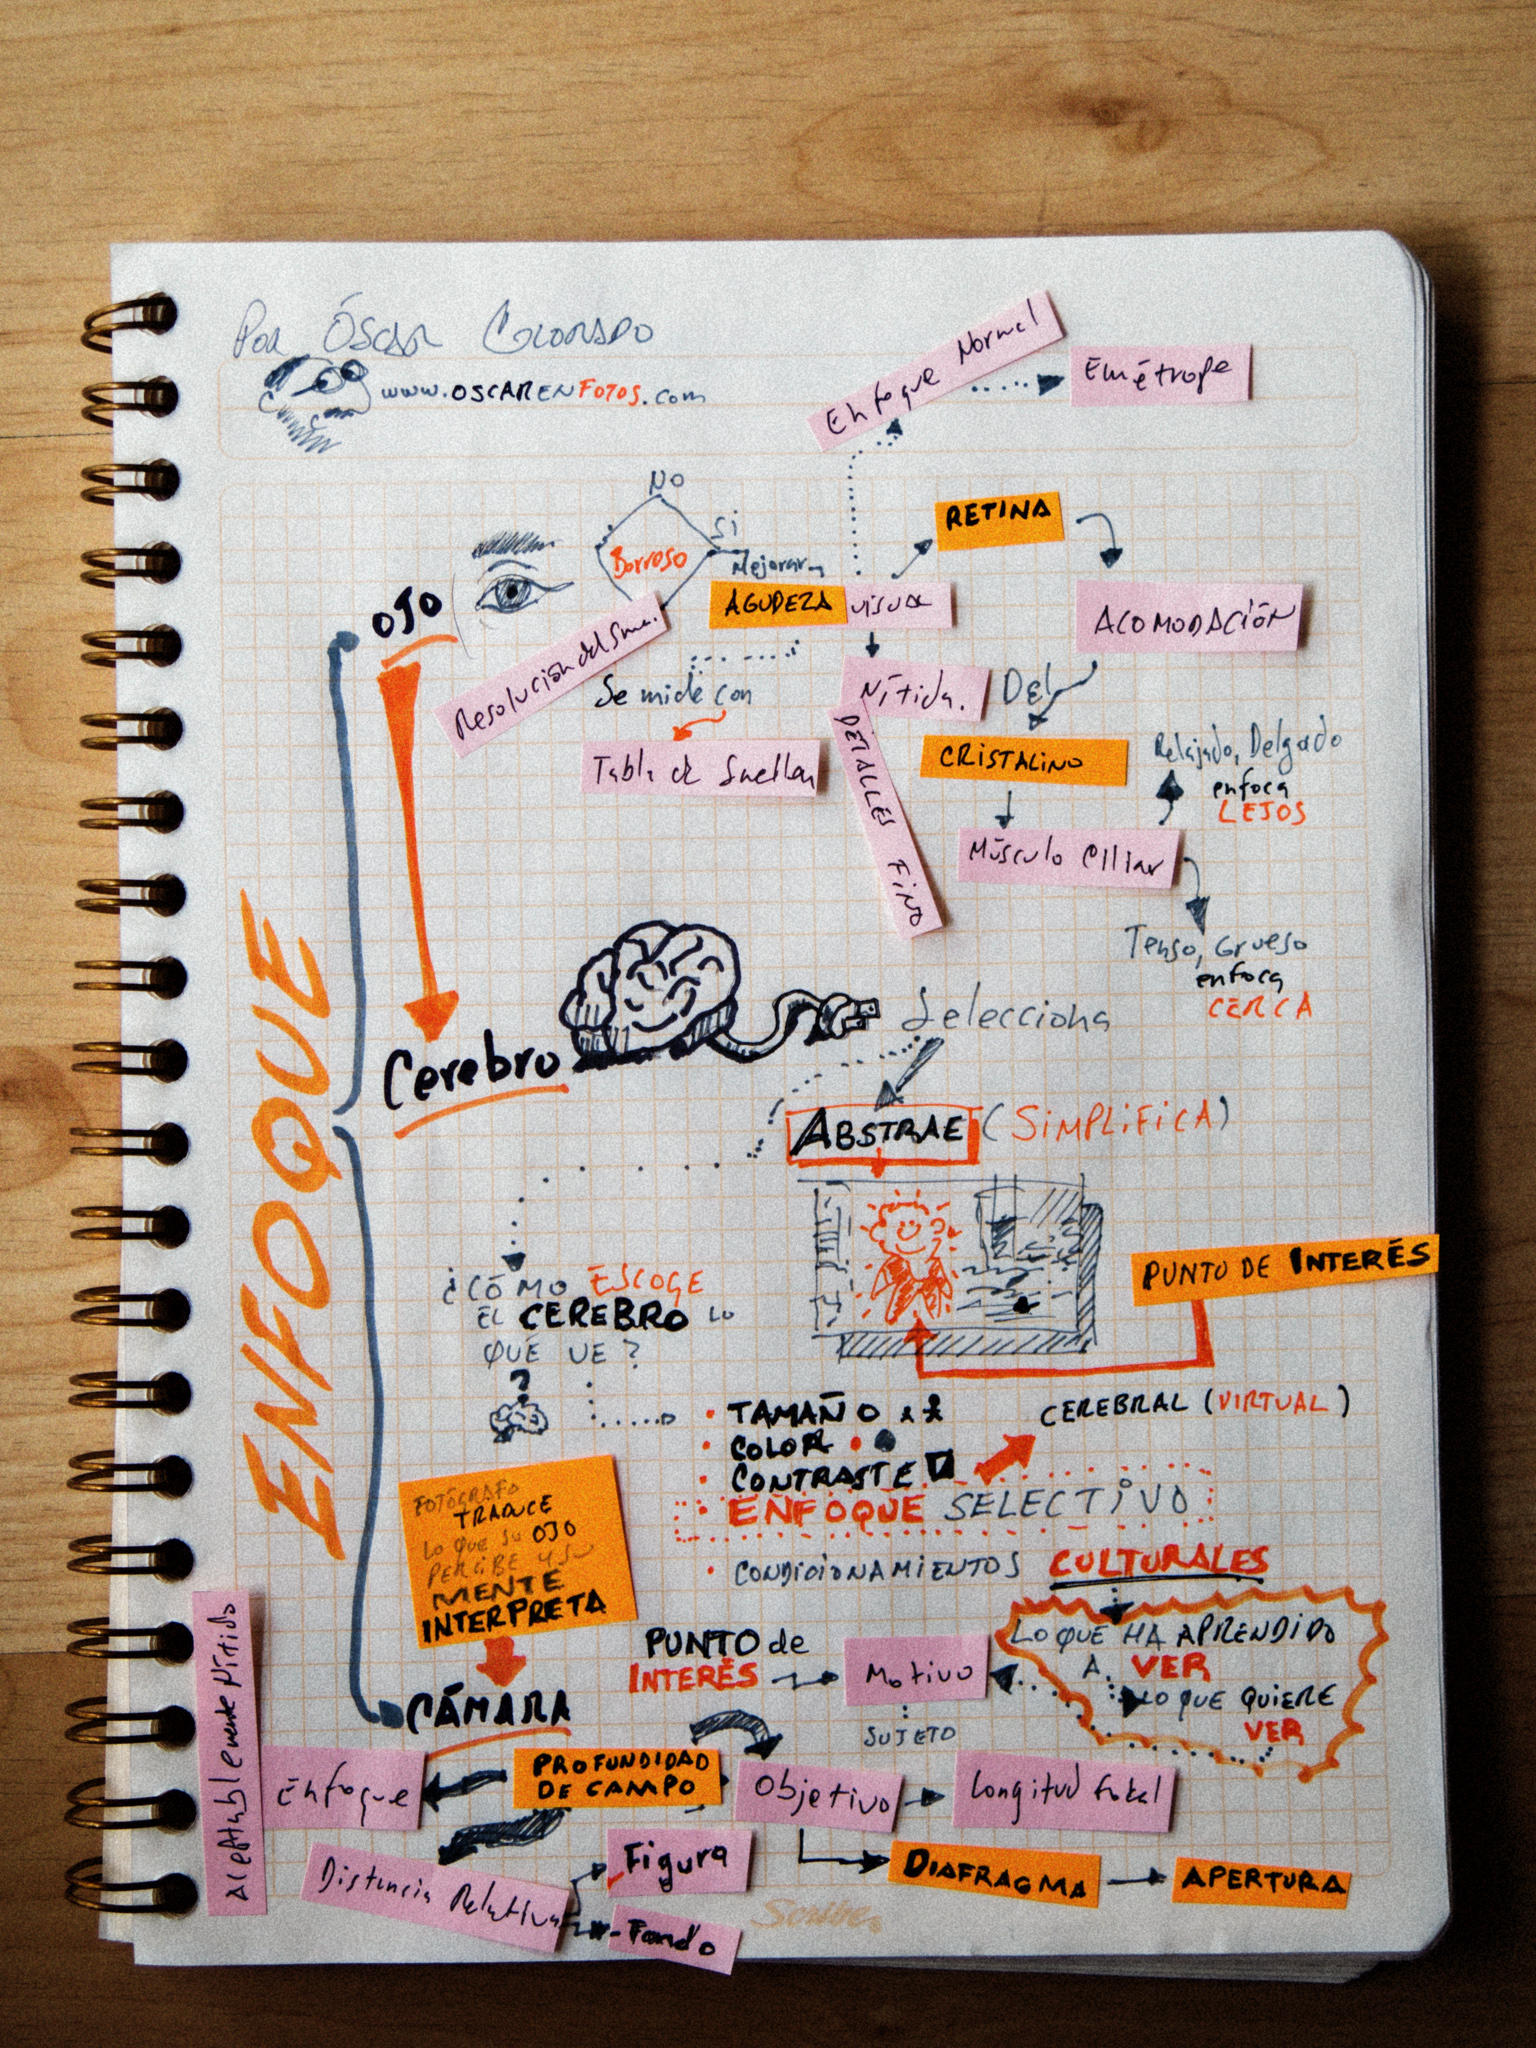 Por Óscar Colorado
www.OSCARENFOTOS.com
Enfoque Normal
Emétrope
No
Si
Borroso
Mejorar
RETINA
OJO
AGUDEZA visual
ACOMODACIÓN
Resolución del Sma.
Se mide con
Nítida.
Del
Tabla de Snellen
DETALLES FINO
CRISTALINO
Relajado, Delgado
enfoca
LEJOS
Músculo Ciliar
Tenso, Grueso
enfoca
CERCA
ENFOQUE
Cerebro
Selecciona
ABSTRAE (SIMPLIFICA)
PUNTO DE INTERÉS
¿CÓMO ESCOGE
EL CEREBRO LO
QUE VE?
?
• TAMAÑO
• COLOR
• CONTRASTE
• ENFOQUE SELECTIVO
• CONDICIONAMIENTOS CULTURALES
CEREBRAL (VIRTUAL)
FOTÓGRAFO
TRADUCE
LO QUE SU OJO
PERCIBE Y SU
MENTE
INTERPRETA
LO QUE HA APRENDIDO
A VER
LO QUE QUIERE
VER
PUNTO de
INTERÉS
Motivo
SUJETO
CÁMARA
Aceptablemente Nítido
Enfoque
PROFUNDIDAD
DE CAMPO
Objetivo
Longitud fokal
Distancia Relativa
Figura
Fondo
DIAFRAGMA
APERTURA
Scribe